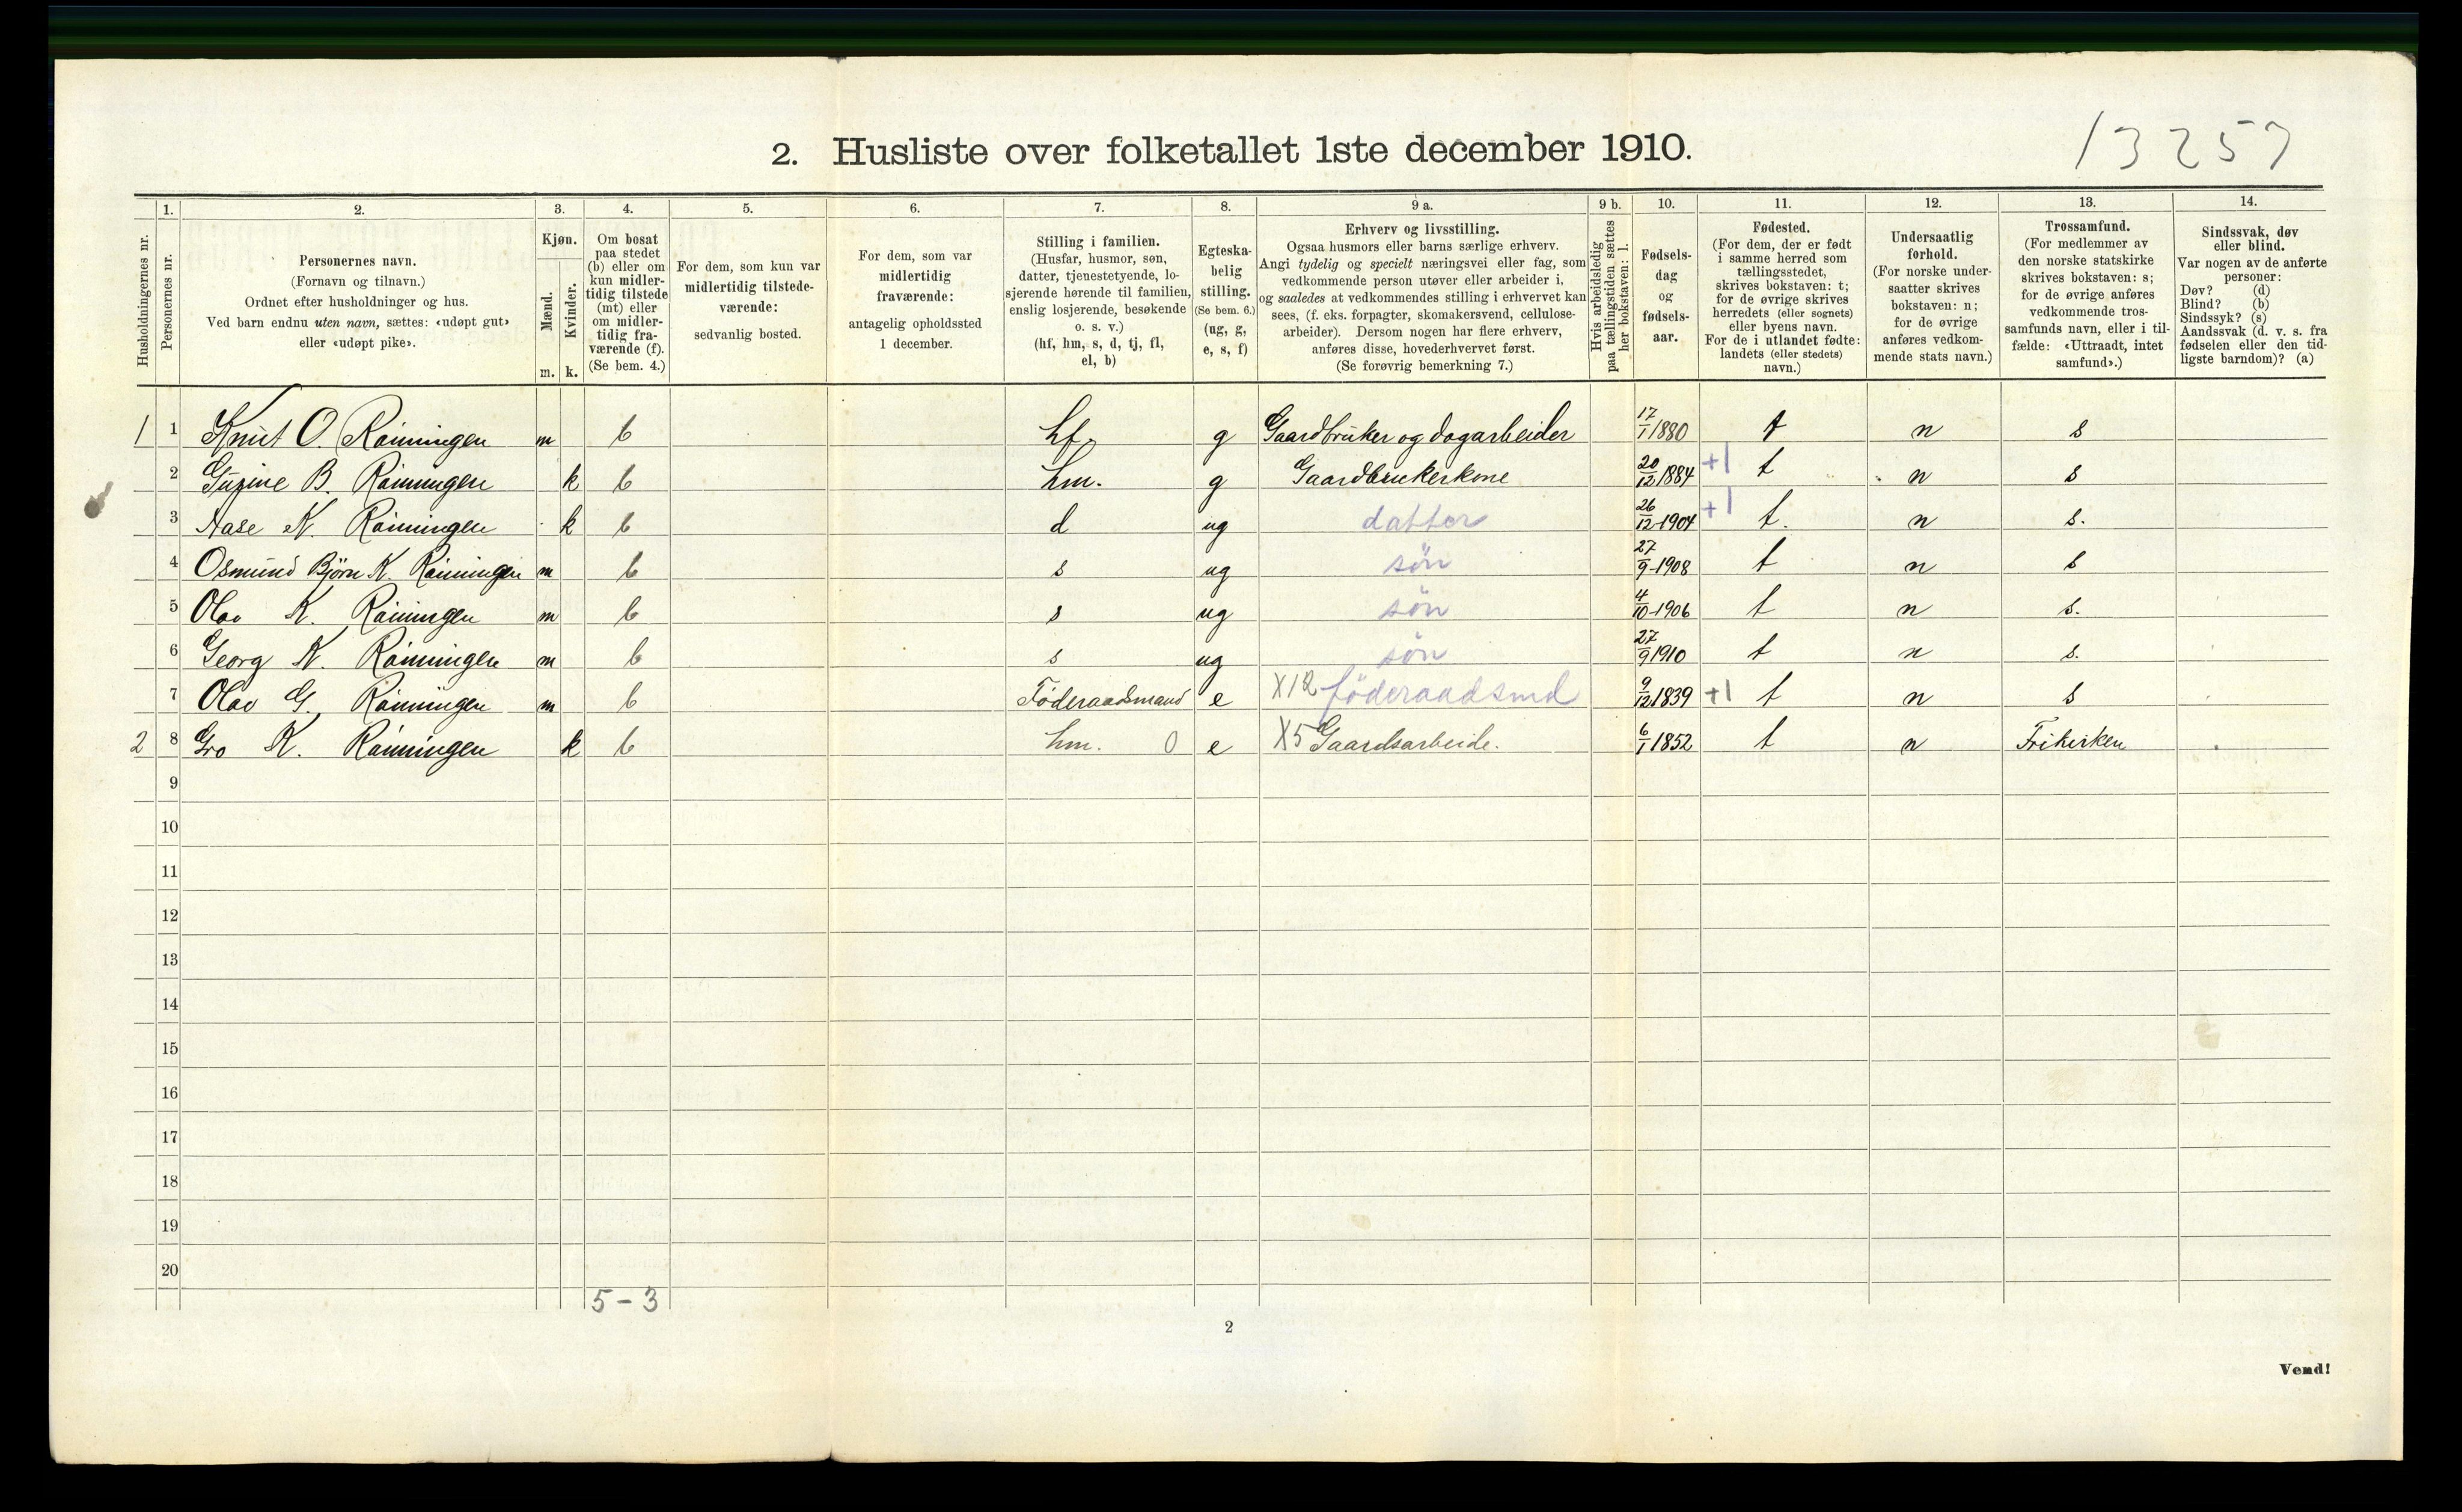 2. Husliste over folketallet 1ste december 1910.
13257
Husholdningernes nr.
1.
Personernes nr.
2.
Personernes navn.
(Fornavn og tilnavn.)
Ordnet efter husholdninger og hus.
Ved barn endnu uten navn, sættes: «udøpt gut»
eller «udøpt pike».
3.
Kjøn.
Mænd.
Kvinder.
m. k.
4.
Om bosat
paa stedet
(b) eller om
kun midler-
tidig tilstede
(mt) eller
om midler-
tidig fra-
værende (f).
(Se bem. 4.)
5.
For dem, som kun var
midlertidig tilstede-
værende:
sedvanlig bosted.
6.
For dem, som var
midlertidig
fraværende:
antagelig opholdssted
1 december.
7.
Stilling i familien.
(Husfar, husmor, søn,
datter, tjenestetyende, lo-
sjerende hørende til familien,
enslig losjerende, besøkende
o. s. v.)
(hf, hm, s, d, tj, fl,
el, b)
8.
Egteska-
belig
stilling.
(Se bem. 6.)
(ug, g,
e, s, f)
9 a.
Erhverv og livsstilling.
Ogsaa husmors eller barns særlige erhverv.
Angi tydelig og specielt næringsvei eller fag, som
vedkommende person utøver eller arbeider i,
og saaledes at vedkommendes stilling i erhvervet kan
sees, (f. eks. forpagter, skomakersvend, cellulose-
arbeider). Dersom nogen har flere erhverv,
anføres disse, hovederhvervet først.
(Se forøvrig bemerkning 7.)
9 b.
Hvis arbeidsledig
paa tællingstiden sættes
her bokstaven: l.
10.
Fødsels-
dag
og
fødsels-
aar.
11.
Fødested.
(For dem, der er født
i samme herred som
tællingsstedet,
skrives bokstaven: t;
for de øvrige skrives
herredets (eller sognets)
eller byens navn.
For de i utlandet fødte:
landets (eller stedets)
navn.)
12.
Undersaatlig
forhold.
(For norske under-
saatter skrives
bokstaven: n;
for de øvrige
anføres vedkom-
mende stats navn.)
13.
Trossamfund.
(For medlemmer av
den norske statskirke
skrives bokstaven: s;
for de øvrige anføres
vedkommende tros-
samfunds navn, eller i til-
fælde: «Uttraadt, intet
samfund».)
14.
Sindssvak, døv
eller blind.
Var nogen av de anførte
personer:
Døv? (d)
Blind? (b)
Sindssyk? (s)
Aandssvak (d. v. s. fra
fødselen eller den tid-
ligste barndom)? (a)
1 1 Knut O. Rönningen m b hf g Gaardbruker og dagarbeider 17/1 1880 t n s
2 B. Rönningen k b hm. g Gaardbrukerkone 20/12 1884 +1 t n s
3 Aase K. Rönningen k b d ug datter 26/12-1904 +1 t. n s.
4 Osmund Björn K. Rönningen m b s ug sön 27/9-1908 t n s
5 Olav K. Rönningen m b s ug sön 4/10-1906 t n s.
6 Georg K. Rönningen m b s ug sön 27/9 1910 t n s.
7 Olav G. Rönningen m b Föderaadsmand e X12 föderaadsmd 9/12 1839 +1 t n s
2 8 Gro K. Rönningen k b hm. 0 e X5 Gaardsarbeide. 6/1 1852 t n Frikirken
9
10
11
12
13
14
15
16
17
18
19
20
5-3
2
Vend!